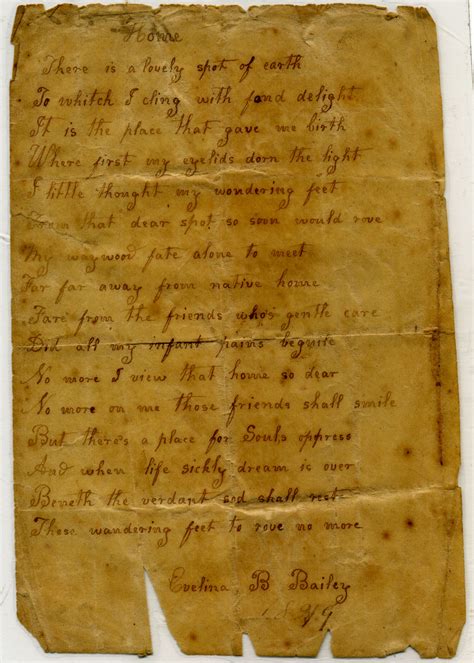 Home
There is a lovely spot of earth
To whitch I cling with fond delight
It is the place that gave me birth
Where first my eyelids dorn the light
I little thought my wondering feet
From that dear spot so soon would rove
My waywood fate alone to meet
Far far away from native home
Fare from the friends who's gentle care
Did all my infant pains beguile
No more I view that home so dear
No more on me those friends shall smile
But there's a place for Souls oppress
And when life sickly dream is over
Beneth the verdant sod shall rest
These wandering feet to rove no more
Evelina B Bailey